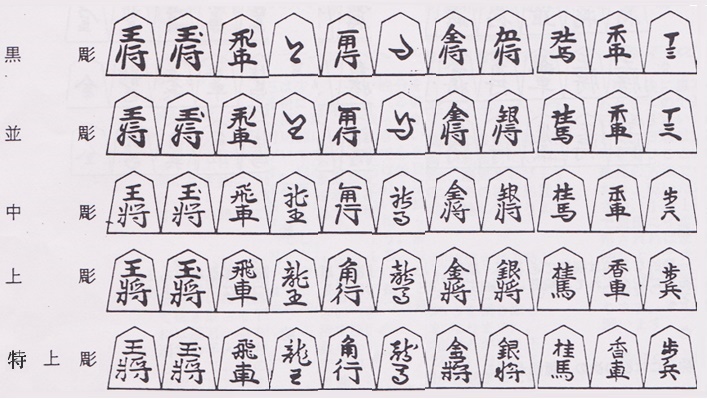 黒彫 王将 玉将 飛車 角行 金将 銀将 桂馬 香車
並彫 王将 玉将 飛車 角行 金将 銀将 桂馬 香車
中彫 王將 玉將 飛車 龍王 角行 龍馬 金將 銀將 桂馬 香車 歩兵
上彫 王將 玉將 飛車 龍王 角行 龍馬 金將 銀將 桂馬 香車 歩兵
特上彫 王將 玉將 飛車 龍王 角行 龍馬 金將 銀将 桂馬 香車 歩兵